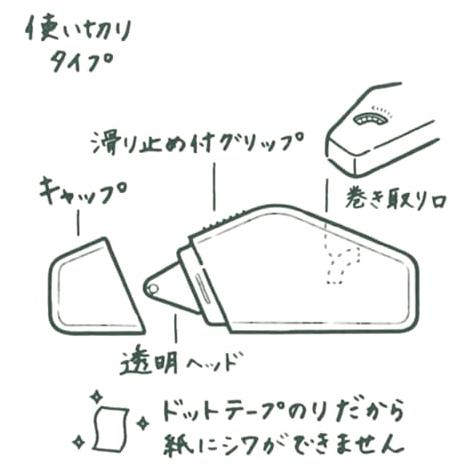 使い切り
タイプ
滑り止め付グリップ
キャップ
巻き取り口
透明ヘッド
ドットテープのりだから
紙にシワができません